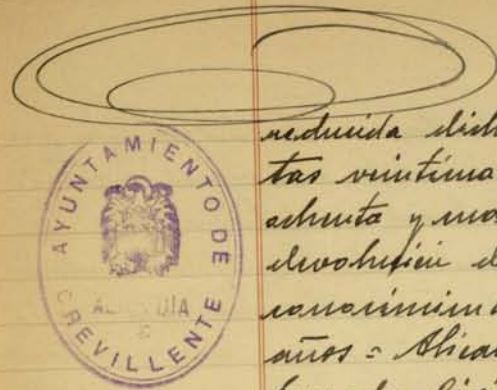 AYUNTAMIENTO DE
CREVILLENTE
reducida dich
tas veintiuna
ochenta y nue
devolución d
conocimien
años = Alican